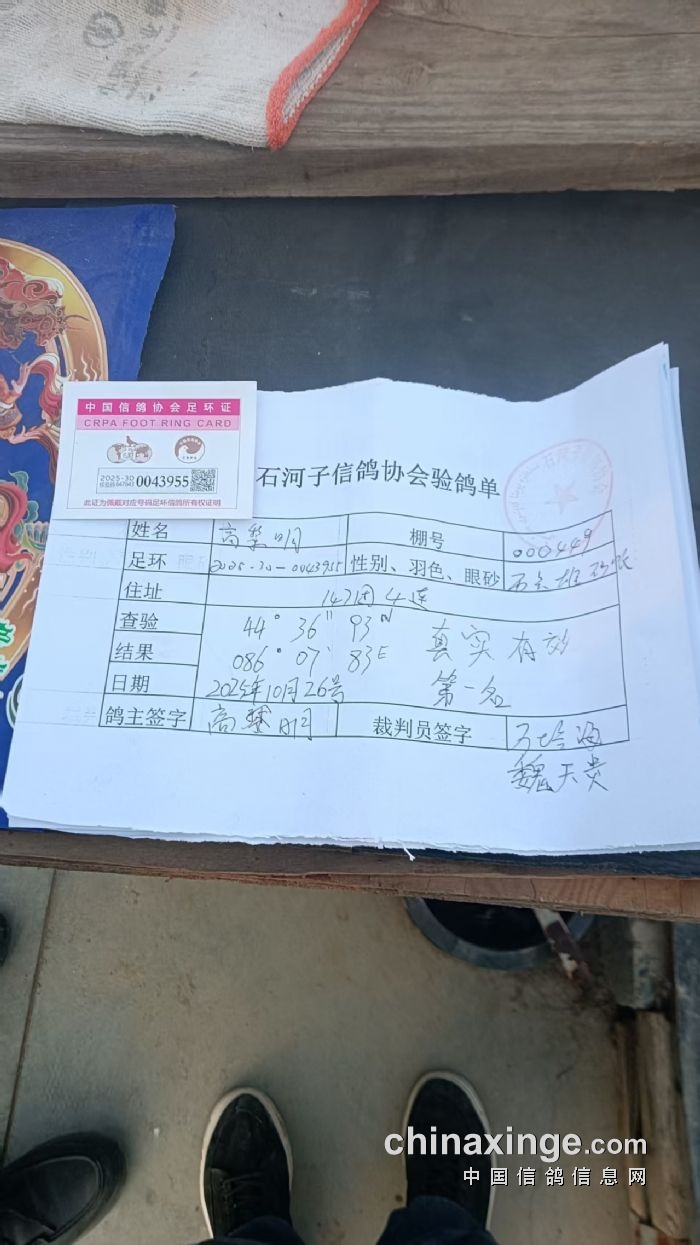 中国信鸽协会足环证
CRPA FOOT RING CARD
2025-30
0043955
此证为佩戴对应号码足环信鸽所有权证明
石河子信鸽协会验鸽单
姓名 高 明 棚号 000449
足环 2025-30-0043955 性别、羽色、眼砂 雄 砂眼
住址 147团4连
查验 44° 36" 93 N 真实有效
结果 086° 07' 83 E
日期 2025年10月26号 第一名
鸽主签字 高 明 裁判员签字
魏天贵
chinaxinge.com
中国信鸽信息网